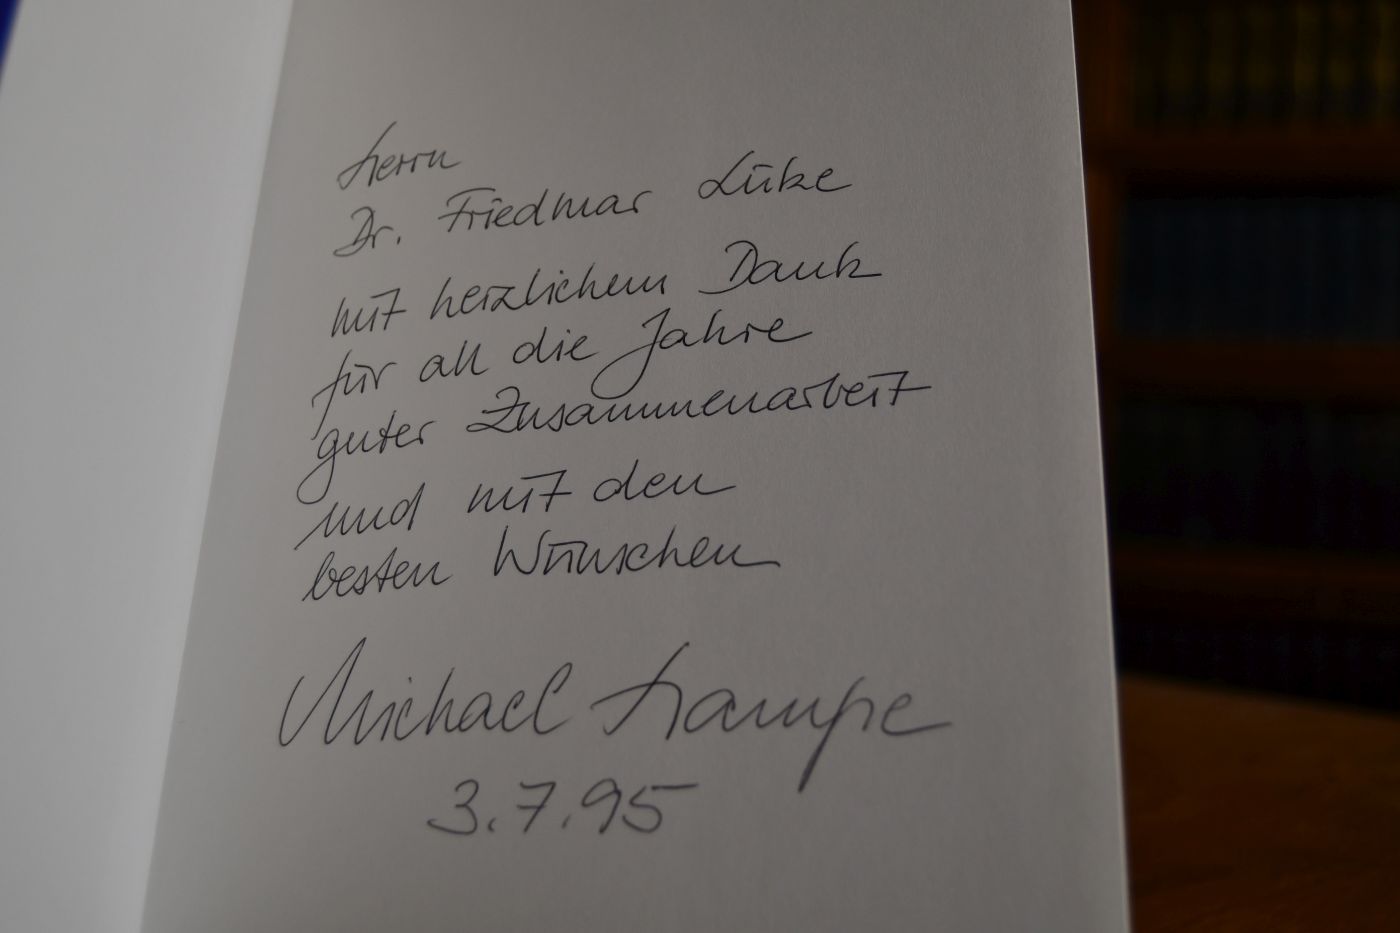 Herrn
Dr. Friedmar Lüke
mit herzlichem Dank
für all die Jahre
guter Zusammenarbeit
und mit den
besten Wünschen
Michael Hampe
3.7.95